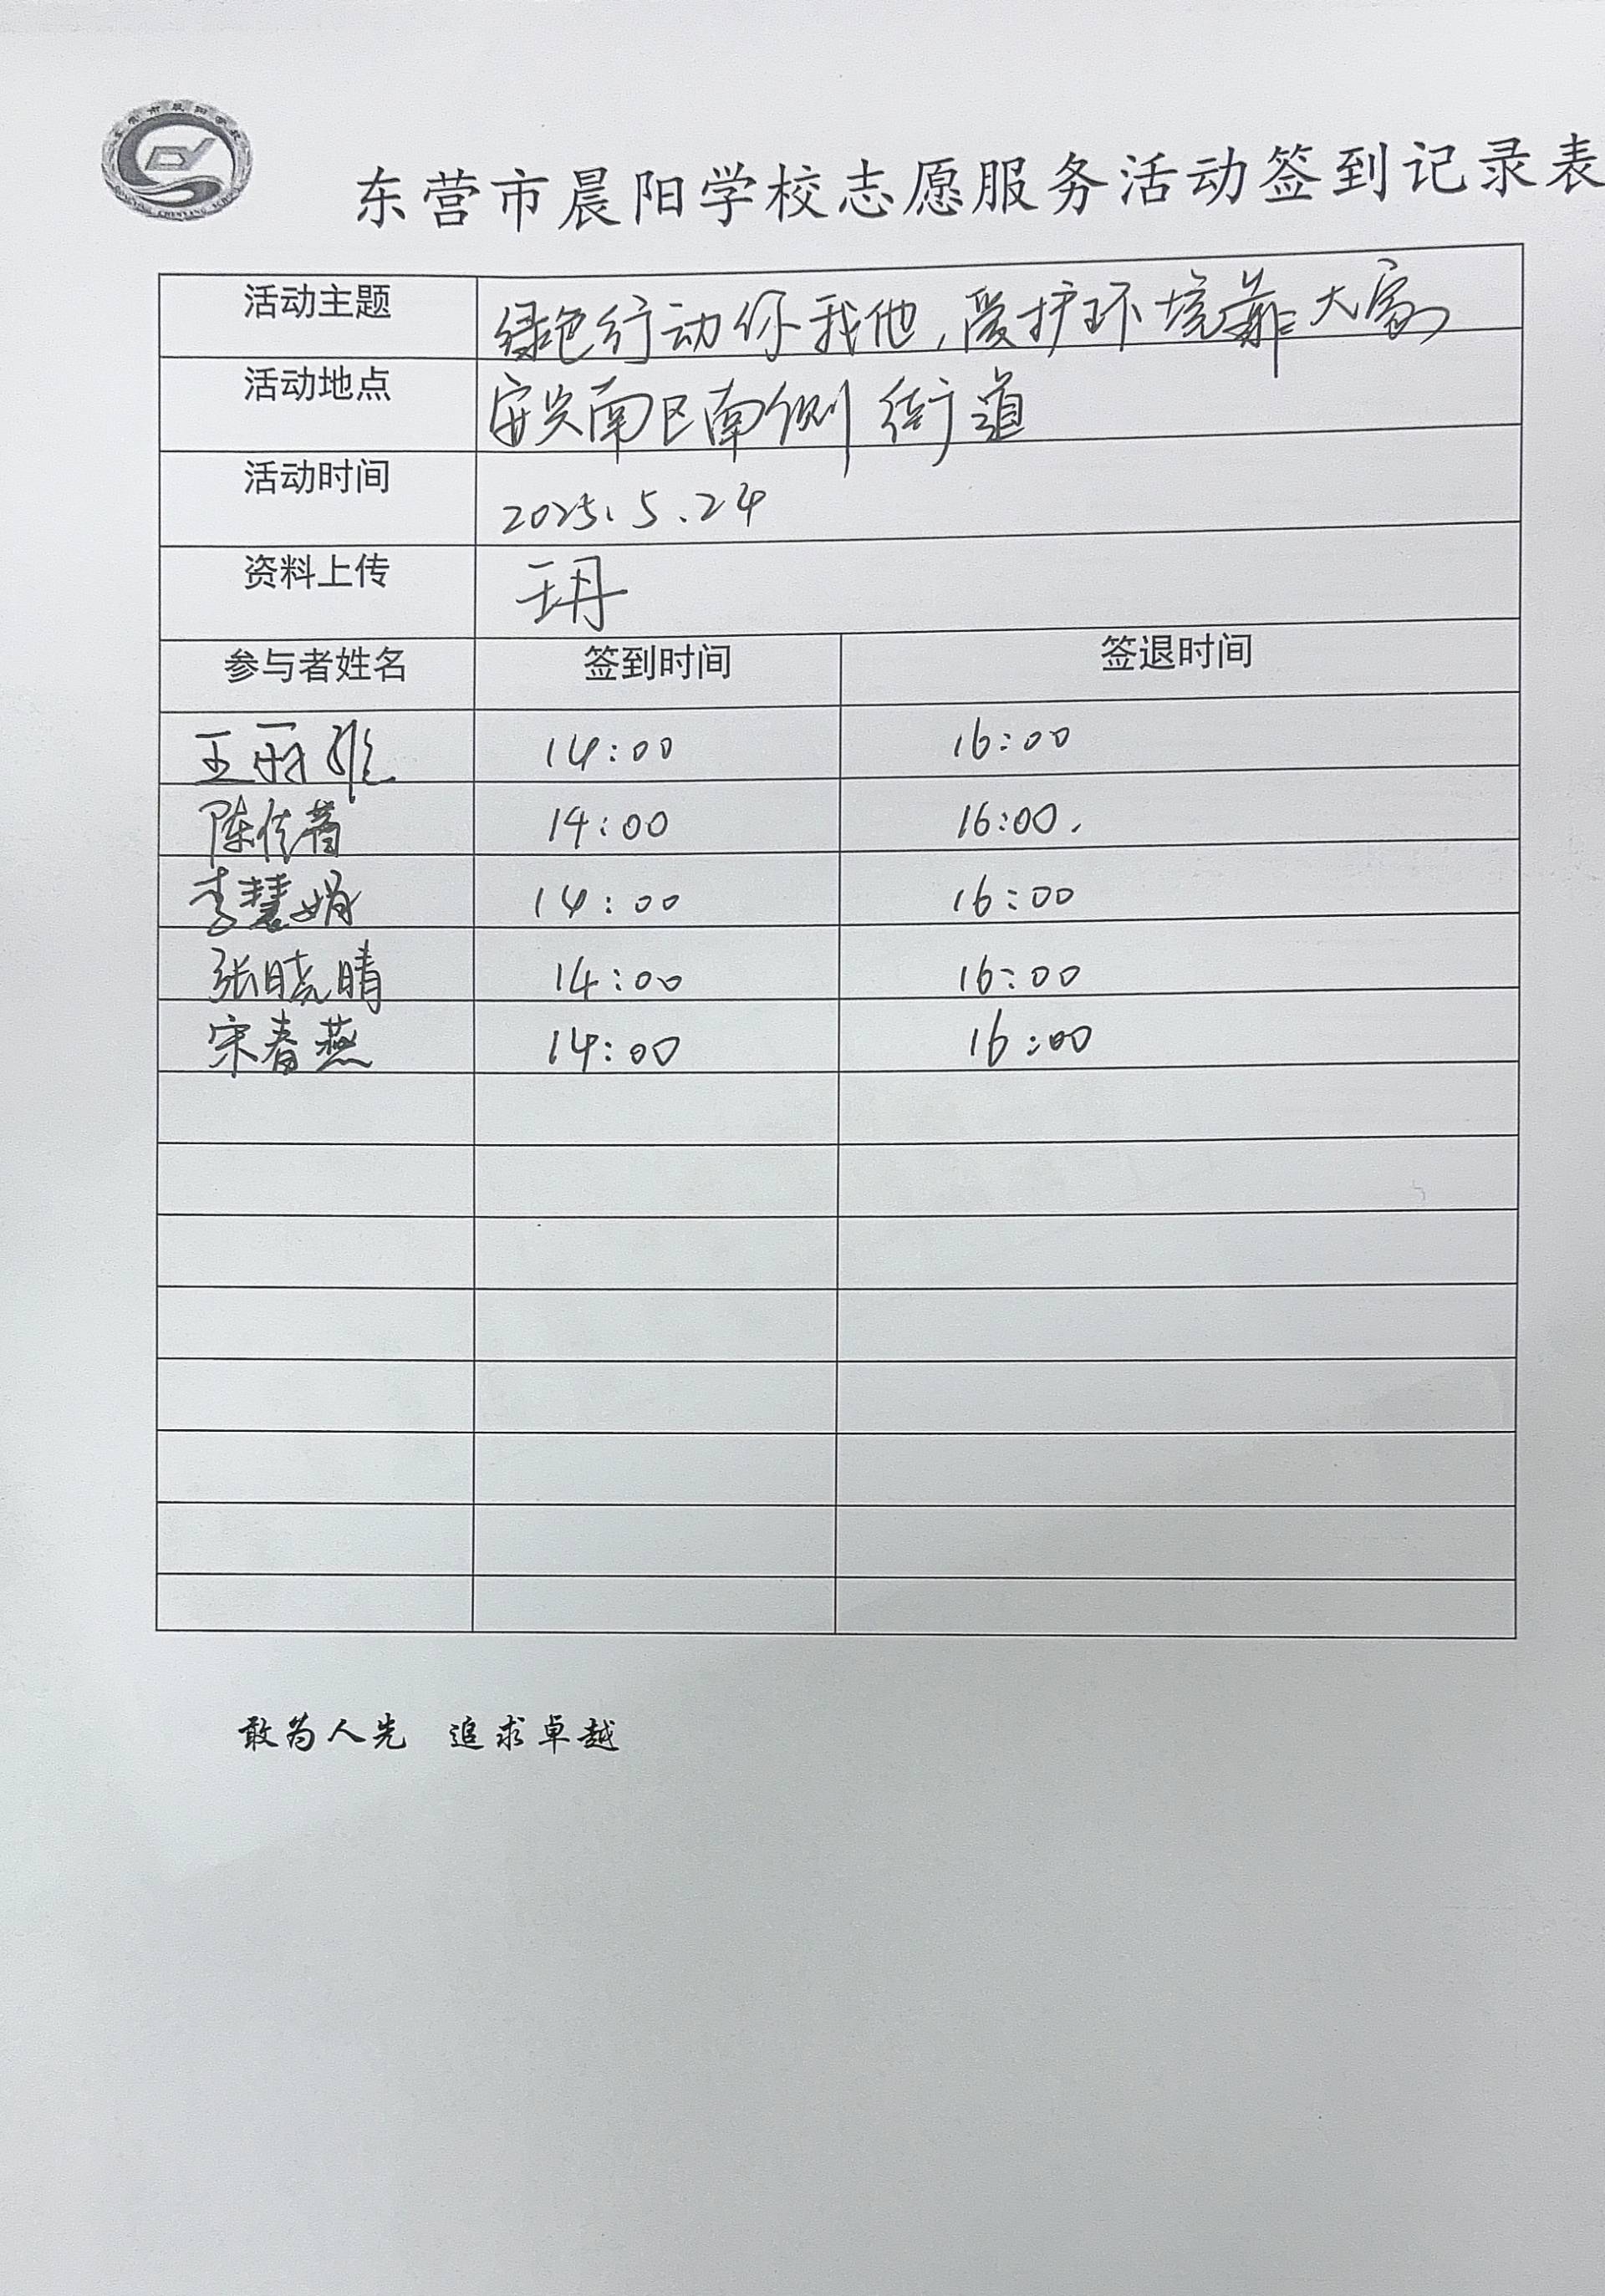 东营市晨阳学校志愿服务活动签到记录表
活动主题 绿色行动你我他,爱护环境靠大家
活动地点 安兴南区南侧街道
活动时间 2025.5.24
资料上传
参与者姓名 签到时间 签退时间
王丽雅 14:00 16:00
陈 14:00 16:00.
李慧娟 14:00 16:00
张晓晴 14:00 16:00
宋春燕 14:00 16:00
敢为人先 追求卓越